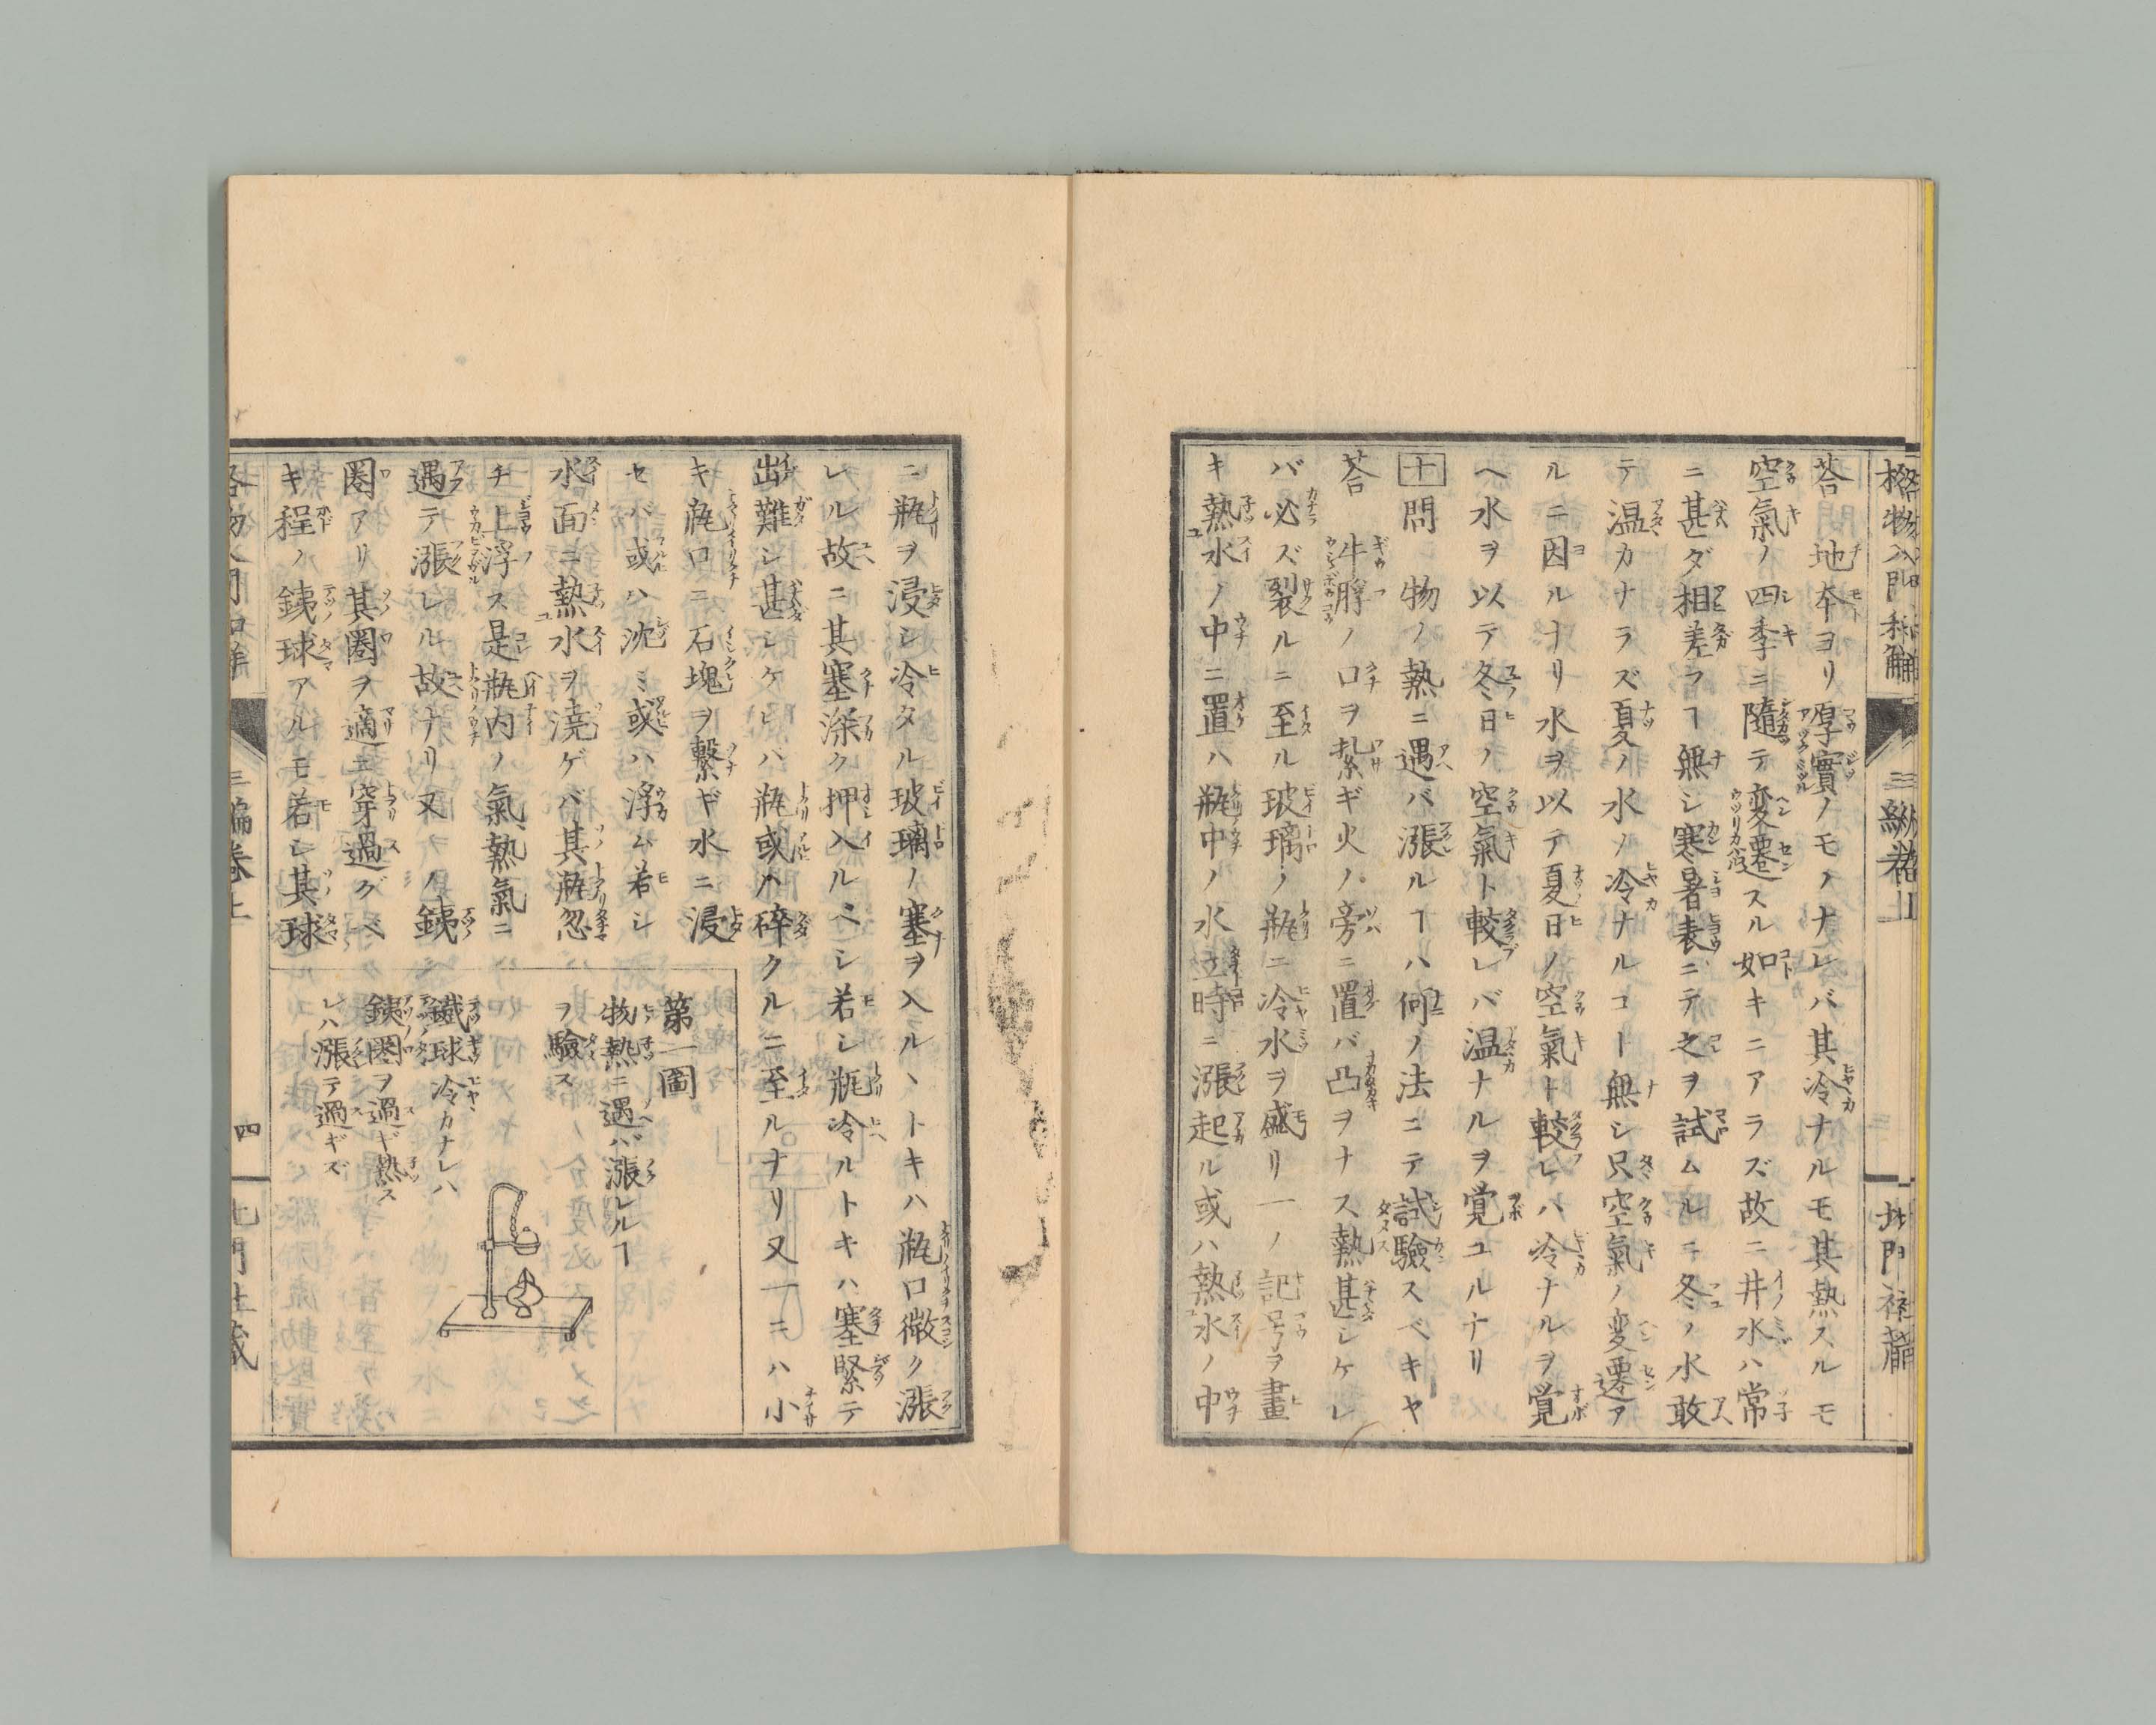 格物入門和解
三編卷上
北門社藏
荅　地本ヨリ厚實ノモノナレバ其冷ナルモ其熱スルモ
空氣ノ四季ニ隨テ変遷スル如キニアラズ故ニ井水ハ常
ニ甚ダ相差フヿ無シ寒暑表ニテ之ヲ試ムルニ冬ノ水敢
テ温カナラズ夏ノ水ノ冷ナルコー無シ只空氣ノ変遷ア
ルニ因ルナリ水ヲ以テ夏日ノ空氣ト較レハ冷ナルヲ覚
ヘ水ヲ以テ冬日ノ空氣ト較レバ温ナルヲ覚ユルナリ
十問　物ノ熱ニ遇バ漲ルヿハ何ノ法ニテ試驗スベキヤ
荅　牛脬ノ口ヲ紮ギ火ノ旁ニ置バ凸ヲナス熱甚シケレ
バ必ズ裂ルニ至ル玻璃ノ瓶ニ冷水ヲ盛リ一ノ記号ヲ畫
キ熱水ノ中ニ置ハ瓶中ノ水立時ニ漲起ル或ハ熱水ノ中
ニ瓶ヲ浸シ冷タル玻璃ノ塞ヲ入ルヽトキハ瓶口微ク漲
レル故ニ其塞深ク押入ルベシ若シ瓶冷ルトキハ塞緊テ
出難シ甚シケレバ瓶或ハ碎クルニ至ルナリ又一ニハ小
キ瓶口ニ石塊ヲ繋ギ水ニ浸
セバ或ハ沈ミ或ハ浮ム若シ
水面ニ熱水ヲ澆ゲバ其瓶忽
チ上浮ス是瓶内ノ氣熱氣ニ
遇テ漲レル故ナリ又ヲノ銕
圏アリ其圏ヲ適ニ穿過グベ
キ程ノ銕球アルモ若シ其球
第一圖
物熱ニ遇バ漲レルヿ
ヲ驗ス
鐵球冷カナレハ
銕圏ヲ過ギ熱ス
レハ漲テ過ギズ
格物入門和解
三編卷上
四
北門社藏